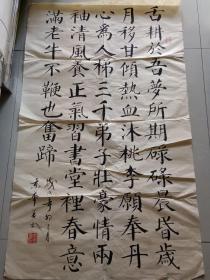 舌耕於吾夢所期碌碌辰昏歲
月移甘傾熱血沐桃李願奉丹
心為人梯三千弟子壯豪情兩
袖清風養正氣習書堂裡春意
滿老牛不鞭也奮蹄